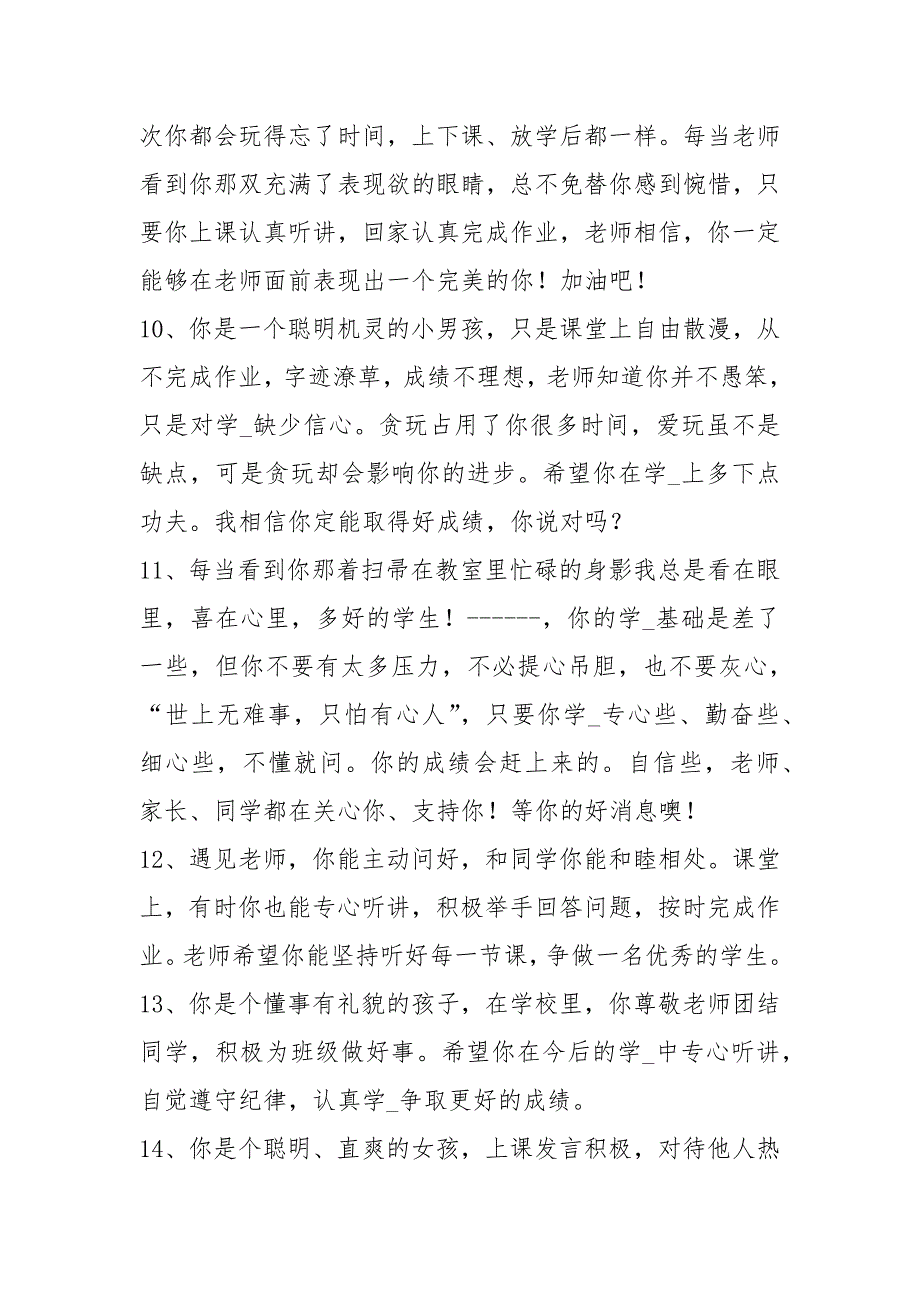 次你都会玩得忘了时间，上下课、放学后都一样。每当老师
看到你那双充满了表现欲的眼睛，总不免替你感到惋惜，只
要你上课认真听讲，回家认真完成作业，老师相信，你一定
能够在老师面前表现出一个完美的你！加油吧！
10、你是一个聪明机灵的小男孩，只是课堂上自由散漫，从
不完成作业，字迹潦草，成绩不理想，老师知道你并不愚笨，
只是对学_缺少信心。贪玩占用了你很多时间，爱玩虽不是
缺点，可是贪玩却会影响你的进步。希望你在学_上多下点
功夫。我相信你定能取得好成绩，你说对吗？
11、每当看到你那着扫帚在教室里忙碌的身影我总是看在眼
里，喜在心里，多好的学生！------，你的学_基础是差了
一些，但你不要有太多压力，不必提心吊胆，也不要灰心，
“世上无难事，只怕有心人”，只要你学_专心些、勤奋些、
细心些，不懂就问。你的成绩会赶上来的。自信些，老师、
家长、同学都在关心你、支持你！等你的好消息噢！
12、遇见老师，你能主动问好，和同学你能和睦相处。课堂
上，有时你也能专心听讲，积极举手回答问题，按时完成作
业。老师希望你能坚持听好每一节课，争做一名优秀的学生。
13、你是个懂事有礼貌的孩子，在学校里，你尊敬老师团结
同学，积极为班级做好事。希望你在今后的学_中专心听讲，
自觉遵守纪律，认真学_争取更好的成绩。
14、你是个聪明、直爽的女孩，上课发言积极，对待他人热